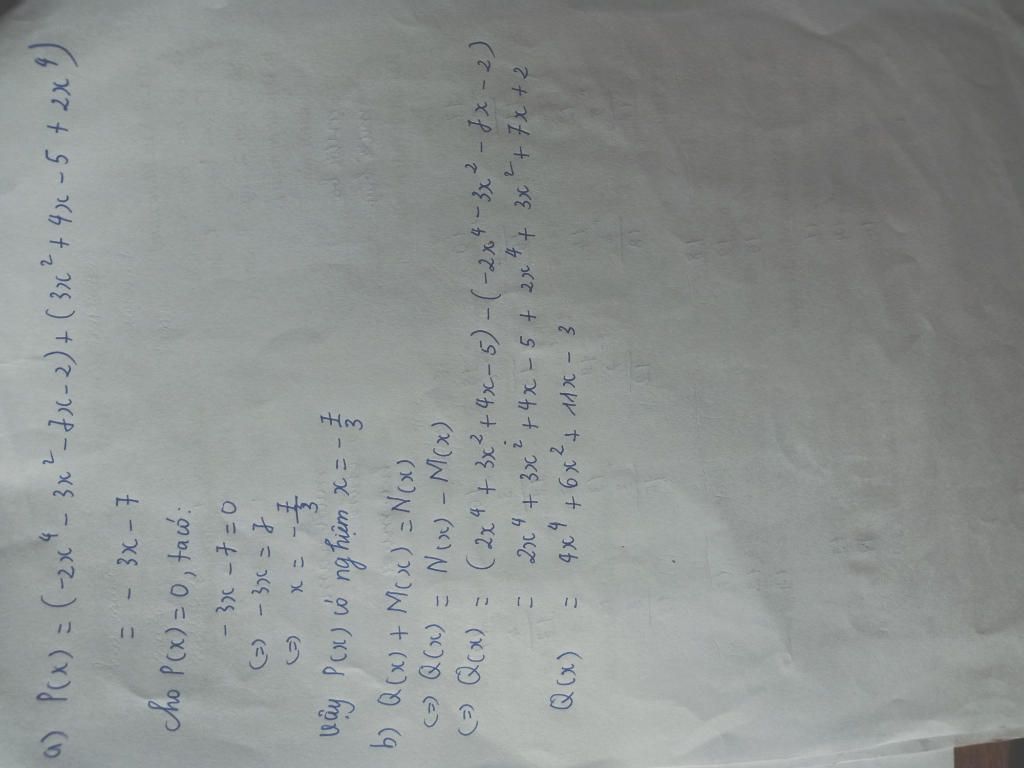 a) P(x) = (-2x⁴ - 3x² - 7x - 2) + (3x² + 4x - 5 + 2x⁴)
= - 3x - 7
cho P(x) = 0, ta có:
- 3x - 7 = 0
(=) - 3x = 7
(=) x = - 7/3
Vậy P(x) có nghiệm x = - 7/3
b) Q(x) + M(x) = N(x)
(=) Q(x) = N(x) - M(x)
(=) Q(x) = (2x⁴ + 3x² + 4x - 5) - (-2x⁴ - 3x² - 7x - 2)
= 2x⁴ + 3x² + 4x - 5 + 2x⁴ + 3x² + 7x + 2
Q(x) = 4x⁴ + 6x² + 11x - 3